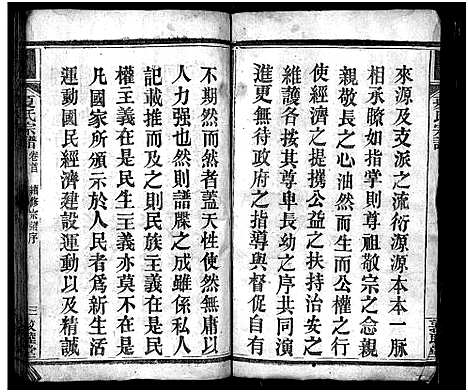 來源及支派之流衍源源本本一脈
相承瞭如指掌則尊祖敬宗之念親
親敬長之心油然而生而公權之行
使經濟之提攜公益之扶持治安之
維護各皆按其尊卑長幼之序共同演
進更有優良之指導與督促自有
不期然而然者蓋天性使然無庸以
人力强為也然則譜牒之成雖係私人
記載推而廣之則民族主義在是民
權主義在是民生主義亦莫不在是
凡國家所頒示於人民者為新生活
運動國民經濟建設運動以及精誠
夏氏宗譜
卷首
續修宗譜序
三
敦睦堂